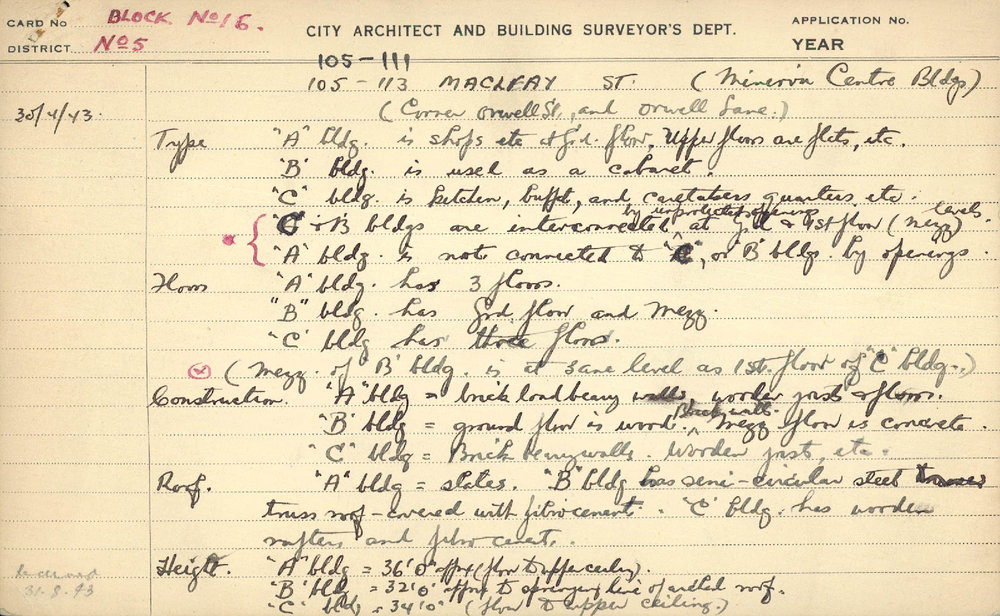 CARD No BLOCK No 16.
DISTRICT No 5
CITY ARCHITECT AND BUILDING SURVEYOR'S DEPT.
APPLICATION No.
YEAR
105-111
105-113 MACLEAY ST. (Minerva Centre Bldgs)
30/4/43. (Corner Orwell St., and Orwell Lane.)
Type "A" bldg. is shops etc at Grd. floor, Upper floors are flats, etc.
"B" bldg. is used as a cabaret.
"C" bldg. is kitchen, buffet, and caretakers quarters, etc.
by unprotected openings levels
"C" & B bldgs are interconnected at grd & 1st floor (mezz)
"A" bldg. is not connected to "C", or "B" bldgs by openings.
Floors "A" bldg. has 3 floors.
"B" bldg. has Grd. floor and Mezz.
"C" bldg has three floors.
(Mezz. of B' bldg. is at same level as 1st. floor of "C" bldg.)
Construction. "A" bldg = brick loadbearing walls, wooden joists & floors.
Brick walls.
"B" bldg = ground floor is wood. Mezz floor is concrete.
"C" bldg = Brick walls. Wooden joists, etc.
Roof. "A" bldg = slates. "B" bldg has semi-circular steel
truss roof - covered with fibrocement. "C" bldg. has wooden
rafters and fibro cement.
Height. "A" bldg = 36'0" approx (floor to upper ceiling).
"B" bldg = 32'0" approx to springing line of arched roof.
"C" bldg = 34'0" (floor to upper ceiling.)
31.8.43